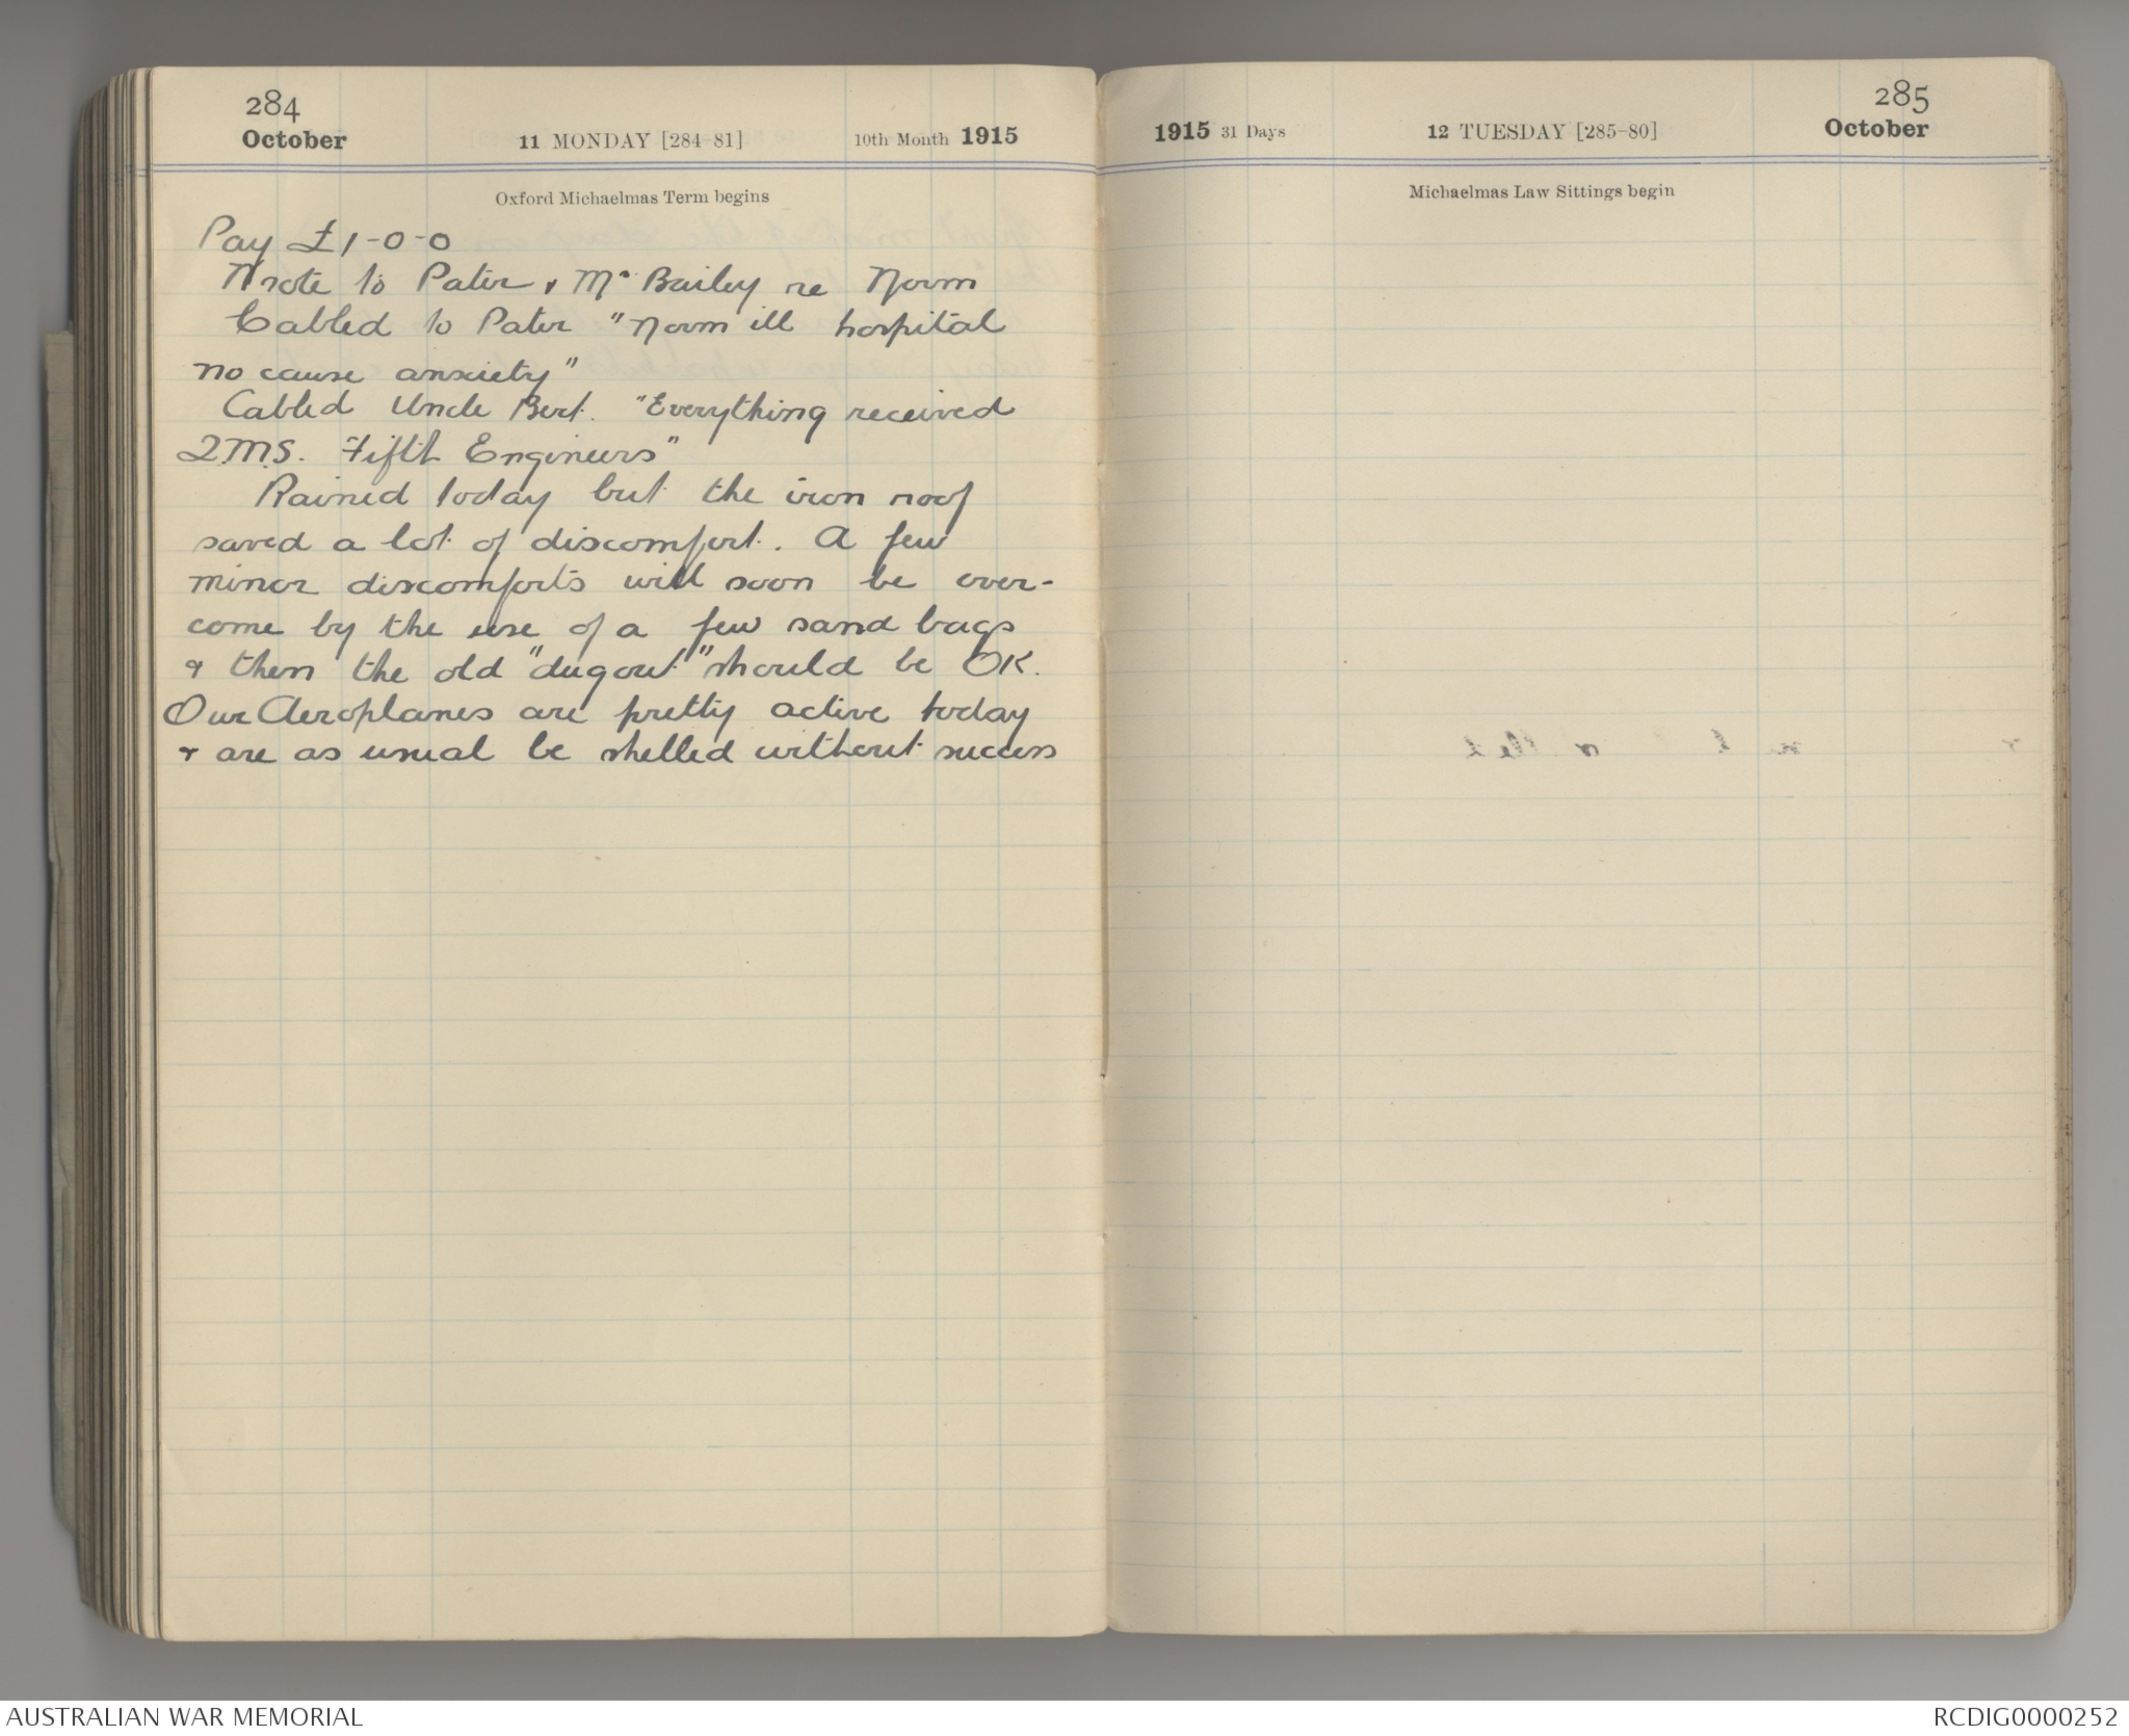 284
October 11 MONDAY [284-81] 10th Month 1915
Oxford Michaelmas Term begins
Pay £1-0-0
Wrote to Pater & Mr Bailey re Norm
Cabled to Pater "Norm ill hospital
no cause anxiety"
Cabled Uncle Bert. "Everything received
Q.M.S. Fifth Engineers"
Rained today but the iron roof
saved a lot of discomfort. A few
minor discomforts will soon be over-
come by the use of a few sand bags
& then the old "dugout" should be OK.
Our Aeroplanes are pretty active today
& are as usual be shelled without success
285
1915 31 Days 12 TUESDAY [285-80] October
Michaelmas Law Sittings begin
AUSTRALIAN WAR MEMORIAL
RCDIG0000252